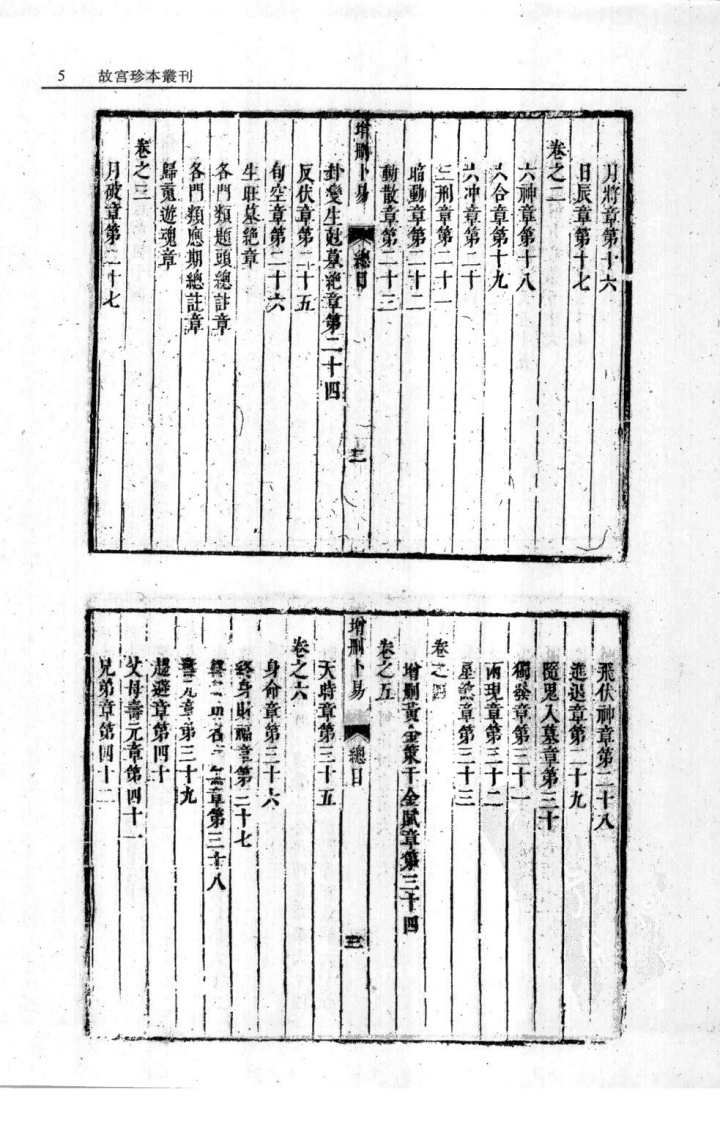 5 故宮珍本叢刊
月將章第十六
日辰章第十七
卷之二
六神章第十八
六合章第十九
六冲章第二十
三刑章第二十一
暗動章第二十二
動散章第二十三
卦變生尅墓絶章第二十四
增刪卜易 總目 二
反伏章第二十五
旬空章第二十六
生旺墓絶章
各門類題頭總註章
各門類應期總註章
歸魂遊魂章
卷之三
月破章第二十七
飛伏神章第二十八
進退章第二十九
隨鬼入墓章第三十
獨發章第三十一
兩現章第三十二
星煞章第三十三
卷之四
增刪黃金策千金賦章第三十四
卷之五
增刪卜易 總目 三
天時章第三十五
卷之六
身命章第三十六
終身財福章第三十七
終身功名 章第三十八
壽元章第三十九
趨避章第四十
父母壽元章第四十一
兄弟章第四十二